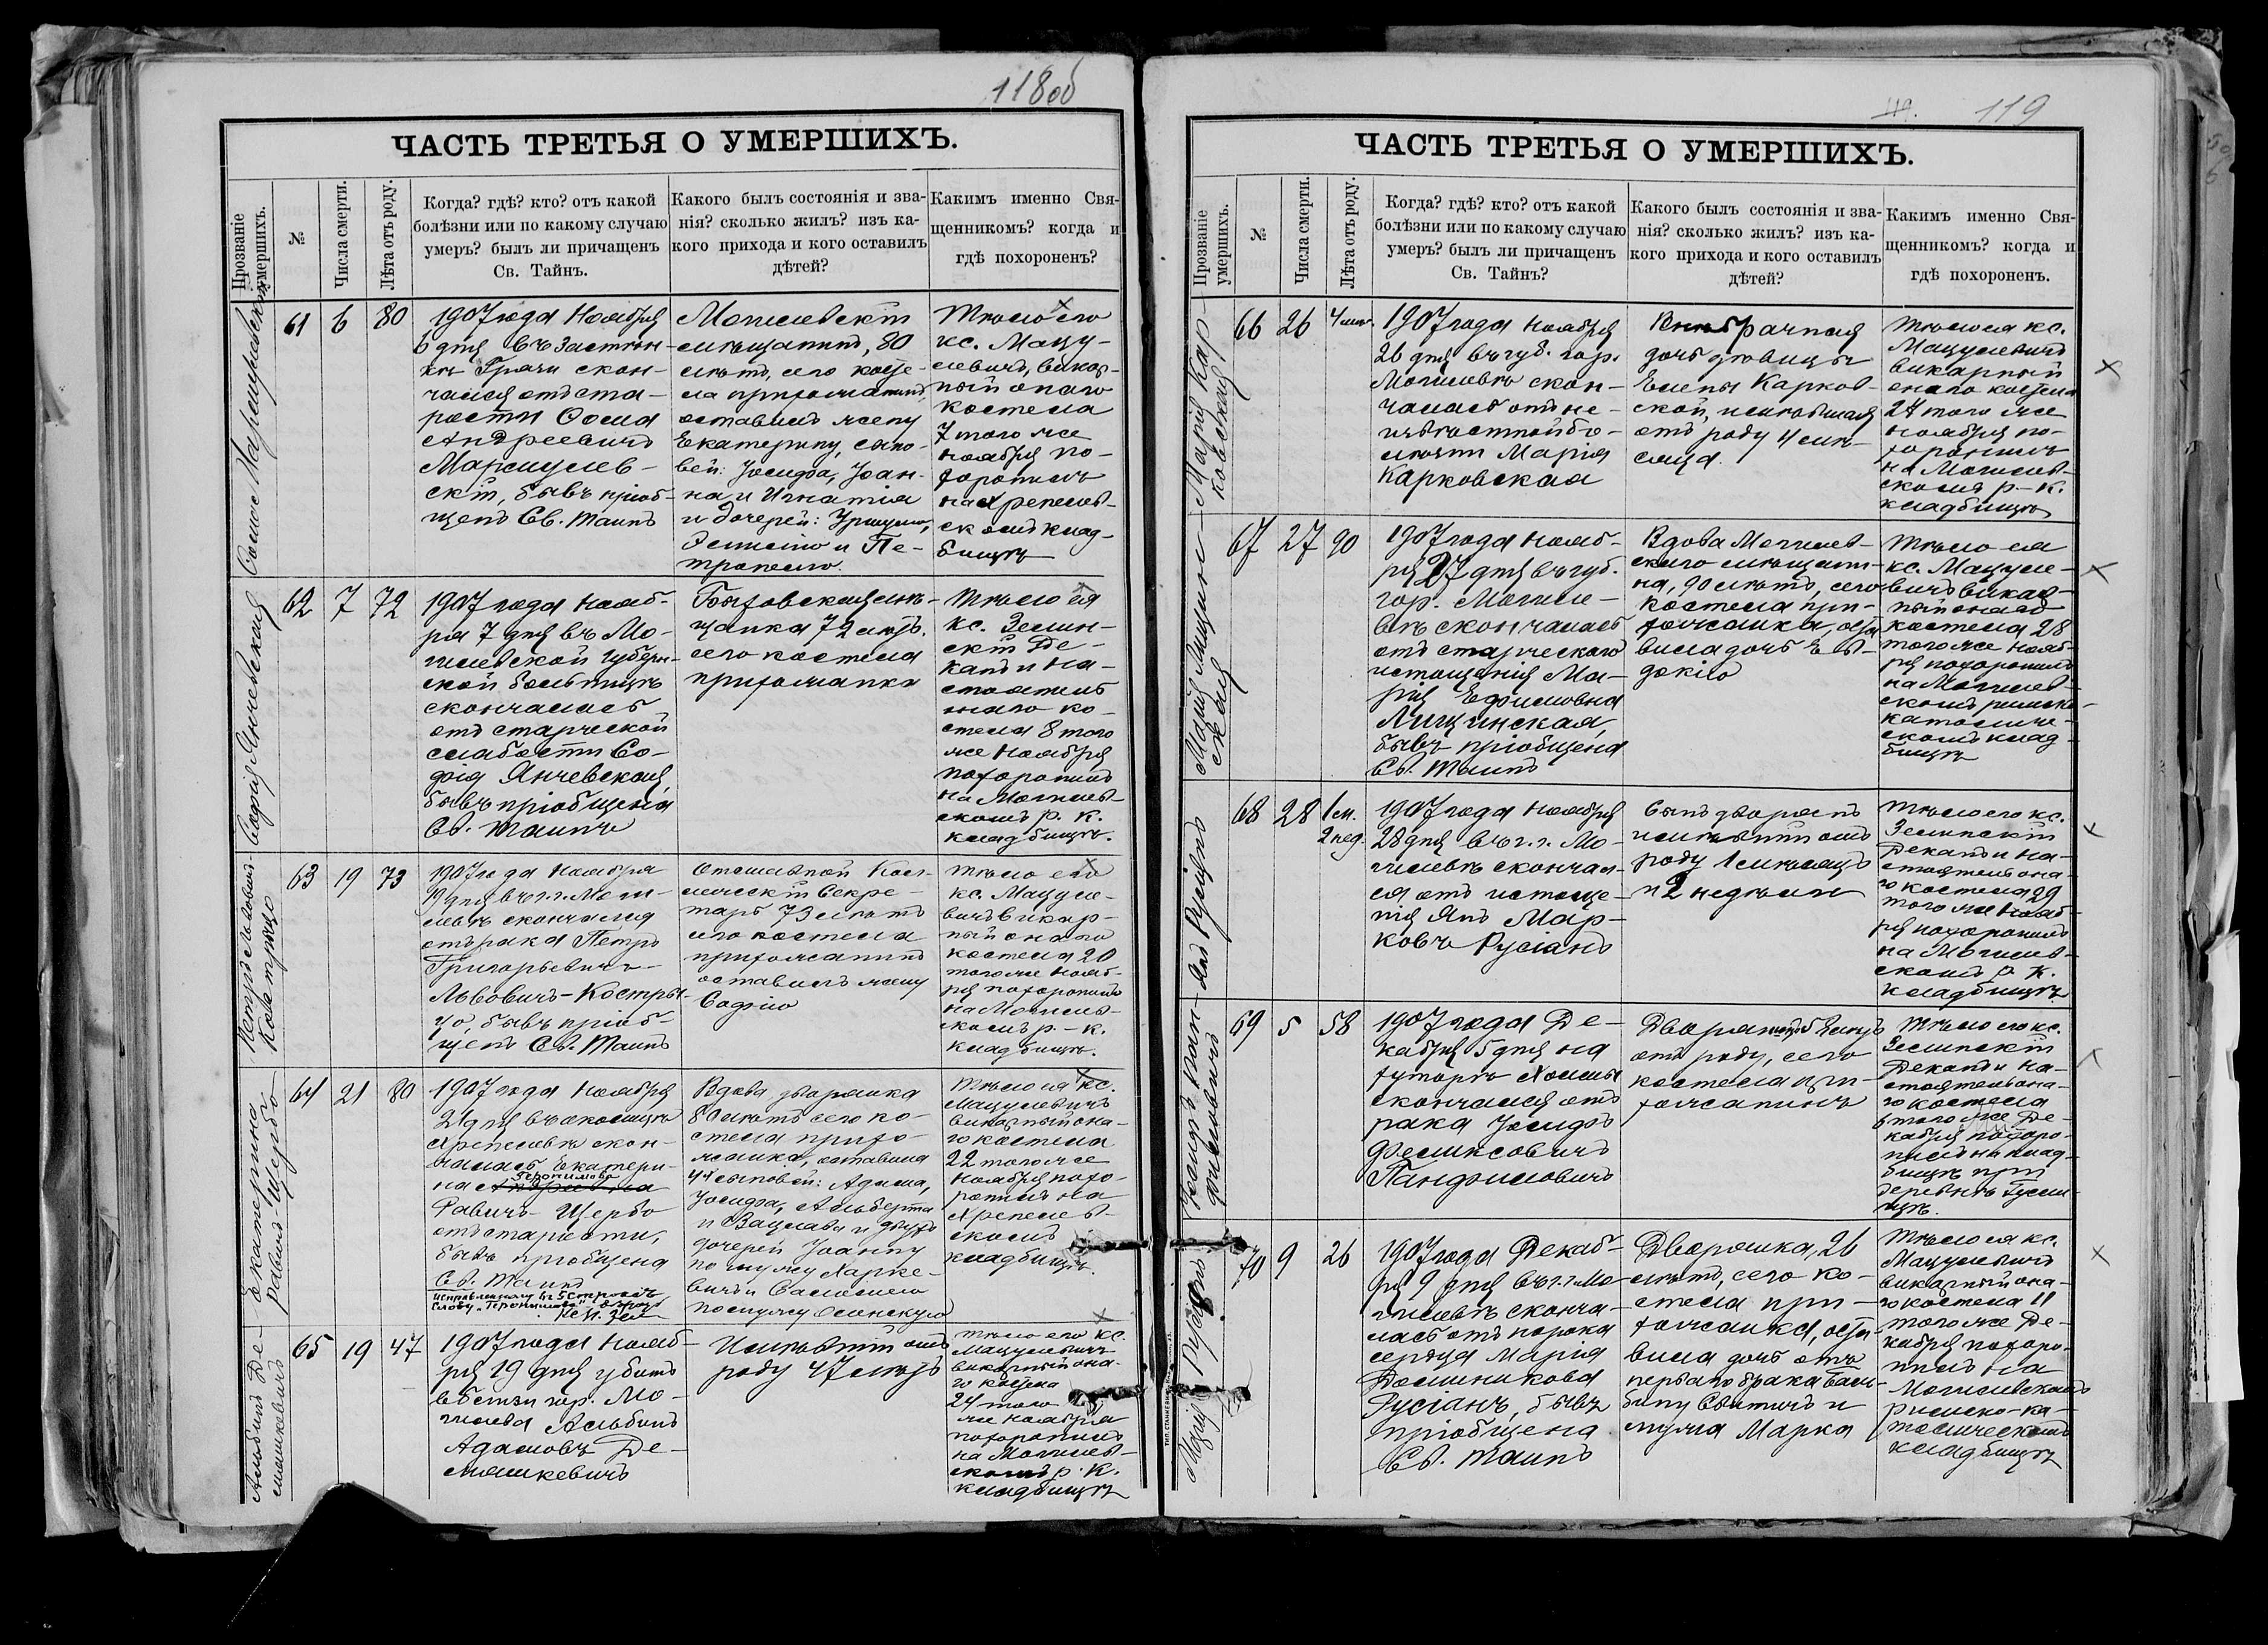 118об
ЧАСТЬ ТРЕТЬЯ О УМЕРШИХЪ.
Прозваніе умершихъ.
№
Числа смерти.
Лѣта отъ роду.
Когда? гдѣ? кто? отъ какой
болѣзни или по какому случаю
умеръ? былъ ли причащенъ
Св. Тайнъ.
Какого былъ состоянія и зва-
нія? сколько жилъ? изъ ка-
кого прихода и кого оставилъ
дѣтей?
Какимъ именно Свя-
щенникомъ? когда и
гдѣ похороненъ?
61
6
80
1907 года Ноября
6 дня въ застѣн-
кѣ Грачи скон-
чался отъ ста-
рости Ѳома
Андреевичъ
Марцулев-
скій, бывъ пріоб-
щенъ Св. Таинъ
Могилевскій
мѣщанинъ, 80
лѣтъ, сего косте-
ла прихожанинъ,
оставилъ жену
Екатерину, сыно-
вей: Іосифа, Іоан-
на и Игнатія
и дочерей:
Эмилію и Пе-
тронелю.
Тѣло его
кс. Мацу-
левичъ, викар-
ный онаго
костела
7 того же
Ноября по-
хоронилъ
на Хрепелев-
скомъ клад-
бищѣ
Софія Янчевская
62
7
72
1907 года Нояб-
ря 7 дня въ Мо-
гилевской губерн-
ской больницѣ
скончалась
отъ старческой
слабости Со-
фія Янчевская,
бывъ пріобщена
Св. Таинъ
Быховская мѣ-
щанка 72 лѣтъ.
сего костела
прихожанка
Тѣло ея
кс. Зелин-
скій Де-
канъ и На-
стоятель
онаго ко-
стела 8 того
же Ноября
похоронилъ
на Могилев-
скомъ р. к.
кладбищѣ.
Петръ Львовичъ-
Кострицо
63
19
73
1907 года Ноября
19 дня въ г. г. Моги-
левѣ скончался
отъ рака Петръ
Григорьевичъ
Львовичъ-Костры-
цо, бывъ пріоб-
щенъ Св. Таинъ
Отставной Кол-
лежскій Секре-
тарь 73 лѣтъ
сего костела
прихожанинъ
оставилъ жену
Софію
Тѣло его
кс. Мацуле-
вичъ викар-
ный онаго
костела 20
того же Нояб-
ря похоронилъ
на Могилев-
скомъ р.-к.
кладбищѣ.
Екатерина
Равичъ-Щербо
64
21
80
1907 года Ноября
21 дня въ околицѣ
Хрепелевѣ скон-
чалась Екатери-
на Андреевна
Геронимова
Равичъ-Щербо
отъ старости,
бывъ пріобщена
Св. Таинъ
Исправленному въ 5 строкѣ
слову „Геронимова" вѣрить
Кс. И. Зел
Вдова дворянка
80 лѣтъ сего ко-
стела прихо-
жанка, оставила
4 сыновей: Адама,
Іосифа, Альберта
и Вацлава и двухъ
дочерей Іоанну
по мужу Харке-
вичъ и Саломею
по мужу Осинскую
Тѣло ея кс.
Мацулевичъ
викарный она-
го костела
22 того же
Ноября похо-
ронилъ на
Хрепелев-
скомъ
кладбищѣ.
Альбинъ Де-
мяшкевичъ
65
19
47
1907 года Нояб-
ря 19 дня убитъ
вблизи гор. Мо-
гилева Альбинъ
Адамовъ Де-
мяшкевичъ
Имѣвшій отъ
роду 47 лѣтъ
Тѣло его кс.
Мацулевичъ
викарный она-
го костела
24 того
же Ноября
похоронилъ
на Могилев-
скомъ р. к.
кладбищѣ
119
ЧАСТЬ ТРЕТЬЯ О УМЕРШИХЪ.
Прозваніе умершихъ.
№
Числа смерти.
Лѣта отъ роду.
Когда? гдѣ? кто? отъ какой
болѣзни или по какому случаю
умеръ? былъ ли причащенъ
Св. Тайнъ?
Какого былъ состоянія и зва-
нія? сколько жилъ? изъ ка-
кого прихода и кого оставилъ
дѣтей?
Какимъ именно Свя-
щенникомъ? когда и
гдѣ похороненъ.
Марія Кар-
ковская
66
26
4 мѣс.
1907 года Ноября
26 дня въ губ. гор.
Могилевѣ скон-
чалась отъ не-
извѣстной бо-
лѣзни Марія
Карковская
Внѣбрачная
дочь дѣвицы
Елены Карков-
ской, имѣвшая
отъ роду 4 мѣ-
сяца.
Тѣло ея кс.
Мацулевичъ
викарный
онаго костела
27 того же
Ноября по-
хоронилъ
на Могилев-
скомъ р-к.
кладбищѣ
Марія Лищин-
ская
67
27
90
1907 года Нояб-
ря 27 дня въ губ.
гор. Могиле-
вѣ скончалась
отъ старческаго
истощенія Ма-
рія Ефимовна
Лищинская,
бывъ пріобщена
Св. Таинъ
Вдова Могилев-
скаго мѣщани-
на, 90 лѣтъ, сего
костела при-
хожанка, оста-
вила дочь Ев-
докію
Тѣло ея
кс. Мацуле-
вичъ викар-
ный онаго
костела 28
того же Нояб-
ря похоронилъ
на Могилев-
скомъ римско-
католиче-
скомъ клад-
бищѣ
Янъ Русіянъ
68
28
1 м.
2 нед.
1907 года Ноября
28 дня въ г. г. Мо-
гилевѣ скончал-
ся отъ истоще-
нія Янъ Мар-
ковъ Русіанъ
Сынъ дворянъ
имѣвшій отъ
роду 1 мѣсяцъ
и 2 недѣли
Тѣло его кс.
Зелинскій
Деканъ и На-
стоятель она-
го костела 29
того же Нояб-
ря похоронилъ
на Могилев-
скомъ р. к.
кладбищѣ
Іосифъ Пан-
филовичъ
69
5
58
1907 года Де-
кабря 5 дня на
хуторѣ Холмы
скончался отъ
рака Іосифъ
Феликсовичъ
Панфиловичъ
отъ роду, сего
костела при-
хожанинъ
Тѣло его кс.
Зелинскій
Деканъ и На-
стоятель она-
го костела
6 того же Де-
кабря похоро-
нилъ на клад-
бищѣ при
деревнѣ
Марія Русіянъ
70
9
26
1907 года Декаб-
ря 9 дня въ г. г. Мо-
гилевѣ сконча-
лась отъ порока
сердца Марія
Доминикова
Русіанъ, бывъ
пріобщена
Св. Таинъ
Дворянка, 26
лѣтъ, сего ко-
стела при-
хожанка, оста-
вила дочь отъ
перваго брака
и
мужа Марка
Тѣло ея кс.
Мацулевичъ
викарный она-
го костела 11
того же Де-
кабря похоро-
нилъ на
Могилевскомъ
римско-ка-
толическомъ
кладбищѣ